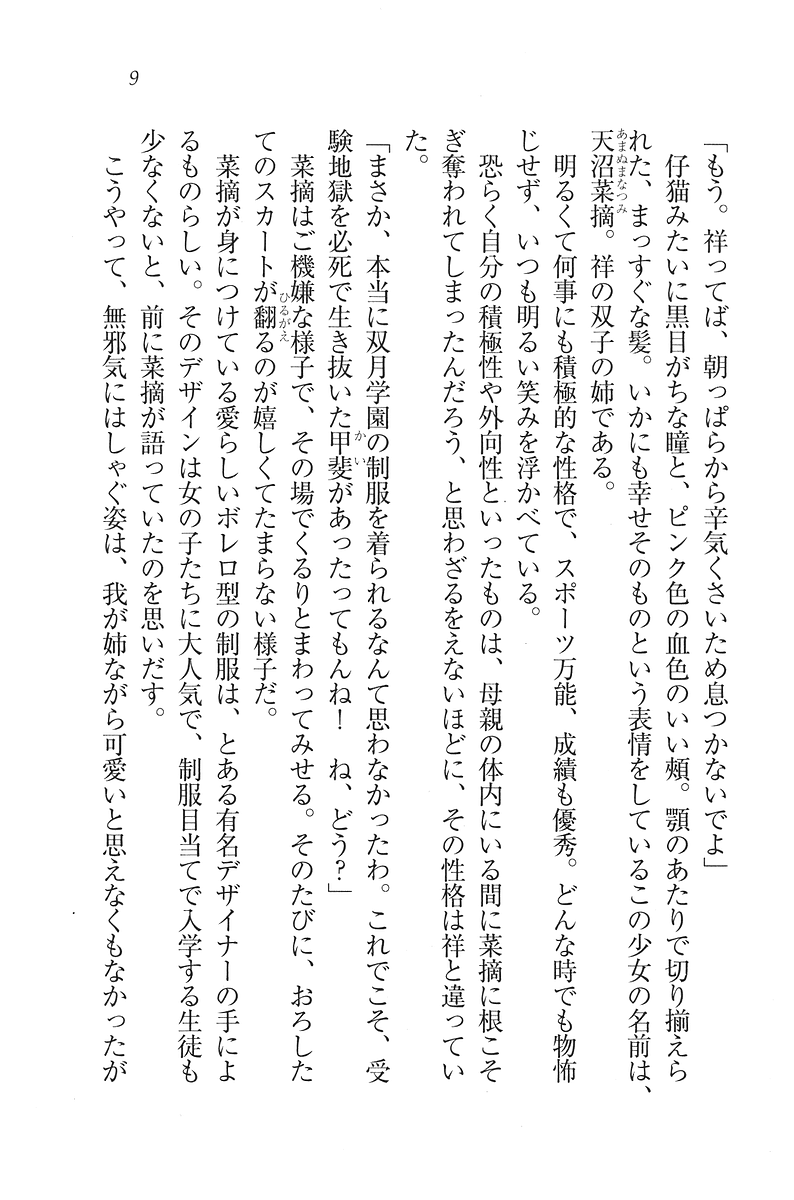 9
「もう。祥ってば、朝っぱらから辛気くさいため息つかないでよ」
仔猫みたいに黒目がちな瞳と、ピンク色の血色のいい頰。顎のあたりで切り揃えら
れた、まっすぐな髪。いかにも幸せそのものという表情をしているこの少女の名前は、
天沼菜摘。祥の双子の姉である。
あまぬまなつみ
明るくて何事にも積極的な性格で、スポーツ万能、成績も優秀。どんな時でも物怖
じせず、いつも明るい笑みを浮かべている。
恐らく自分の積極性や外向性といったものは、母親の体内にいる間に菜摘に根こそ
ぎ奪われてしまったんだろう、と思わざるをえないほどに、その性格は祥と違ってい
た。
「まさか、本当に双月学園の制服を着られるなんて思わなかったわ。これでこそ、受
験地獄を必死で生き抜いた甲斐があったってもんね！　ね、どう？」
かい
菜摘はご機嫌な様子で、その場でくるりとまわってみせる。そのたびに、おろした
てのスカートが翻るのが嬉しくてたまらない様子だ。
ひるがえ
菜摘が身につけている愛らしいボレロ型の制服は、とある有名デザイナーの手によ
るものらしい。そのデザインは女の子たちに大人気で、制服目当てで入学する生徒も
少なくないと、前に菜摘が語っていたのを思いだす。
こうやって、無邪気にはしゃぐ姿は、我が姉ながら可愛いと思えなくもなかったが